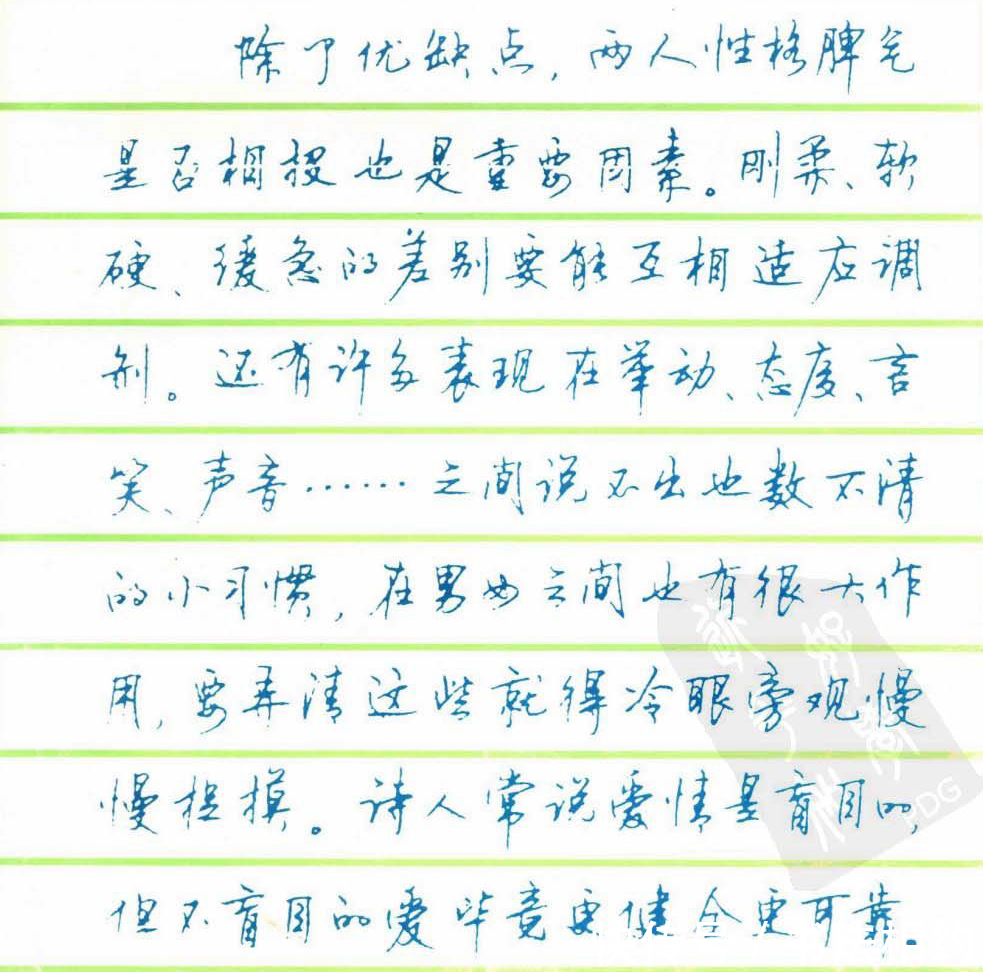 除了优缺点，两人性格脾气
是否相投也是重要因素。刚柔、软
硬、缓急的差别要能互相适应调
剂。还有许多表现在举动、态度、言
笑、声音……之间说不出也数不清
的小习惯，在男女之间也有很大作
用，要弄清这些就得冷眼旁观慢
慢捉摸。诗人常说爱情是盲目的，
但不盲目的爱毕竟更健全更可靠。
PDG